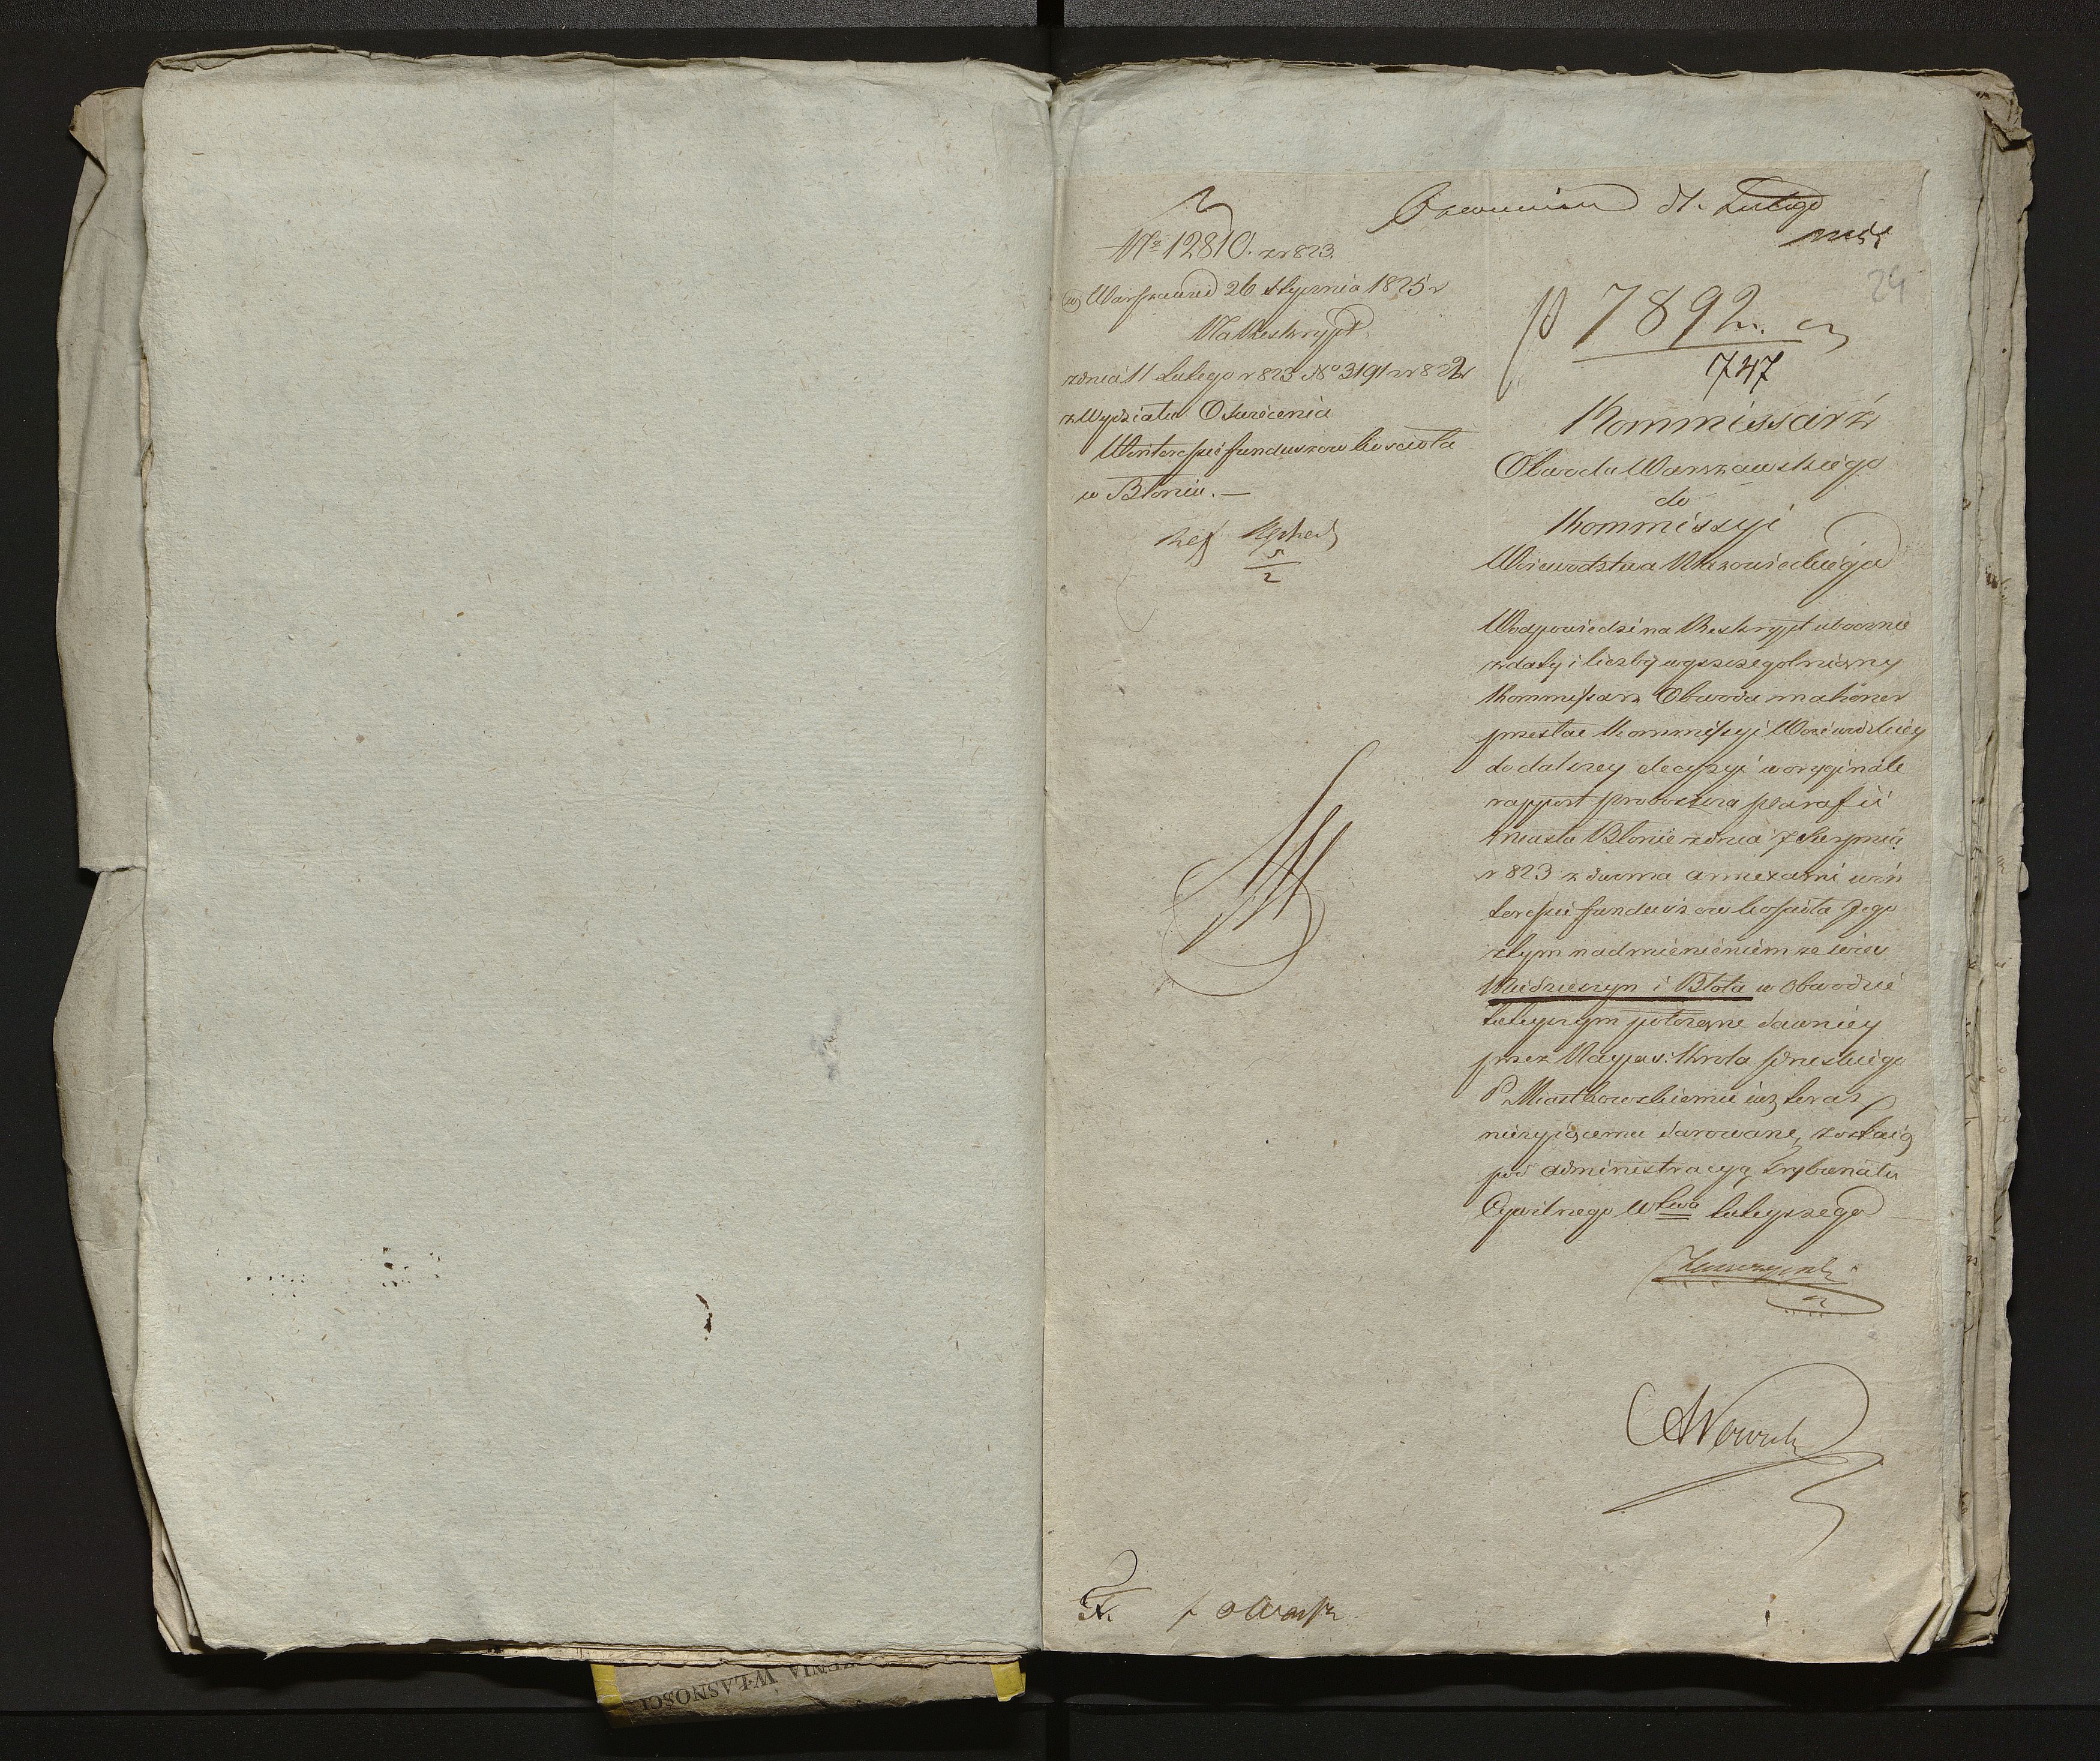 24
№ 12810. z r 823.
w Warszawie d 26 Stycznia 1825 r
Na Reskrypt
z dnia 11 Lutego r 823 No 3191 z r 822
z Wydziału Oświecenia
W interessie funduszow kościoła
w Błoniu. —
5
2
d 1. Lutego
7892
747
Kommissarz
Obwodu Warszawskiego
do
Kommissyi
Woiewodztwa Mazowieckiego
W odpowiedzi na Reskrypt ubocznie
z daty i liczby wyszczegolniony
Kommissarz Obwodu ma honor
przesłać Kommissyi Woiewodzkiey
do dalszey decyzyi w oryginale
rapport proboszcza parafii
Miasta Błonie z dnia 7 Sierpnia
r 823 z dwoma annexami w in
teressie funduszow kościoła Jego
z tym nadmienieniem ze wsie
Miedzeszyn i Błota w Obwodzie
tuteyszym położone dawniey
przez Nayjaś: Krola Pruskiego
P. Miaskowskiemu iuz teraz
nieżyiącemu darowane, zostaią
pod administracyą Trybunału
Cywilnego Wtwa tuteyszego
A Nowick
WŁASNOŚCI